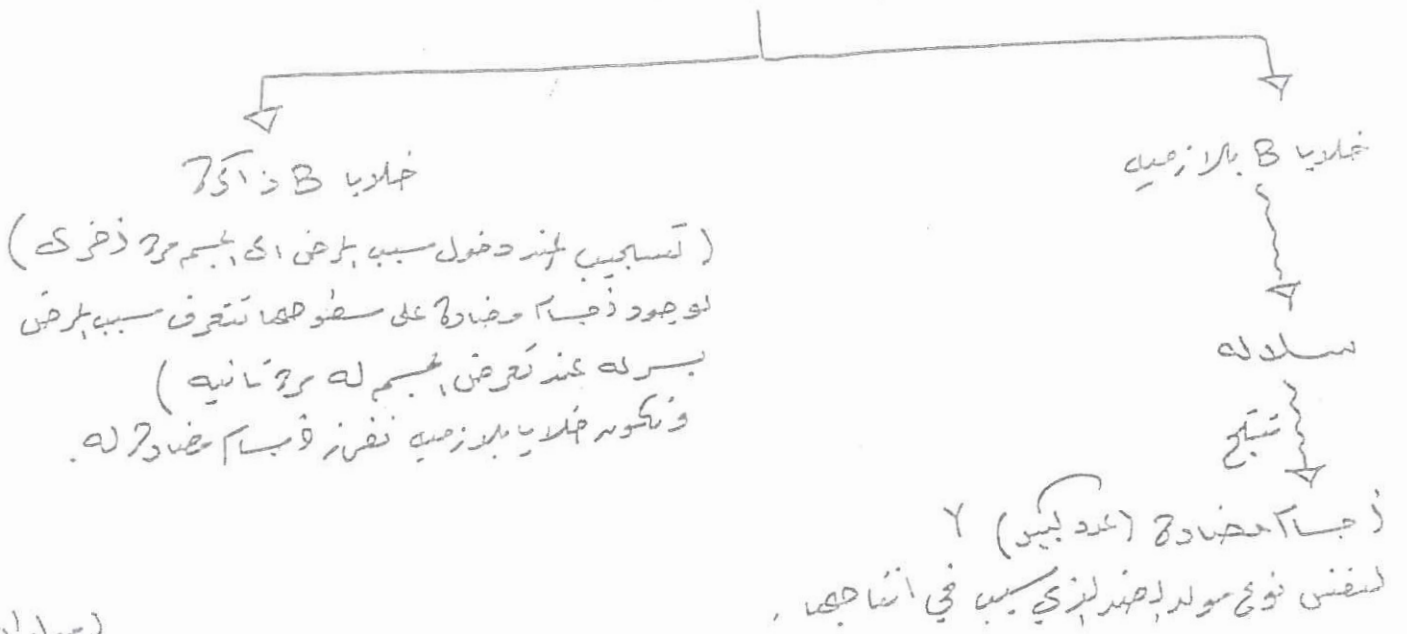 خلايا B بلازميه
سلاله
تنتج
أجسام مضادة (عدد كبير) Y
لنفس نوع مولد الضد الذي سبب في انتاجها .
خلايا B ذاكرة
( تستجيب عند دخول سبب المرض الى الجسم مرة أخرى )
لوجود أجسام مضادة على سطوحها تتعرف سبب المرض
بسرعه عند تعرض الجسم له مرة ثانيه )
وتكون خلايا بلازميه تفرز أجسام مضادة له .